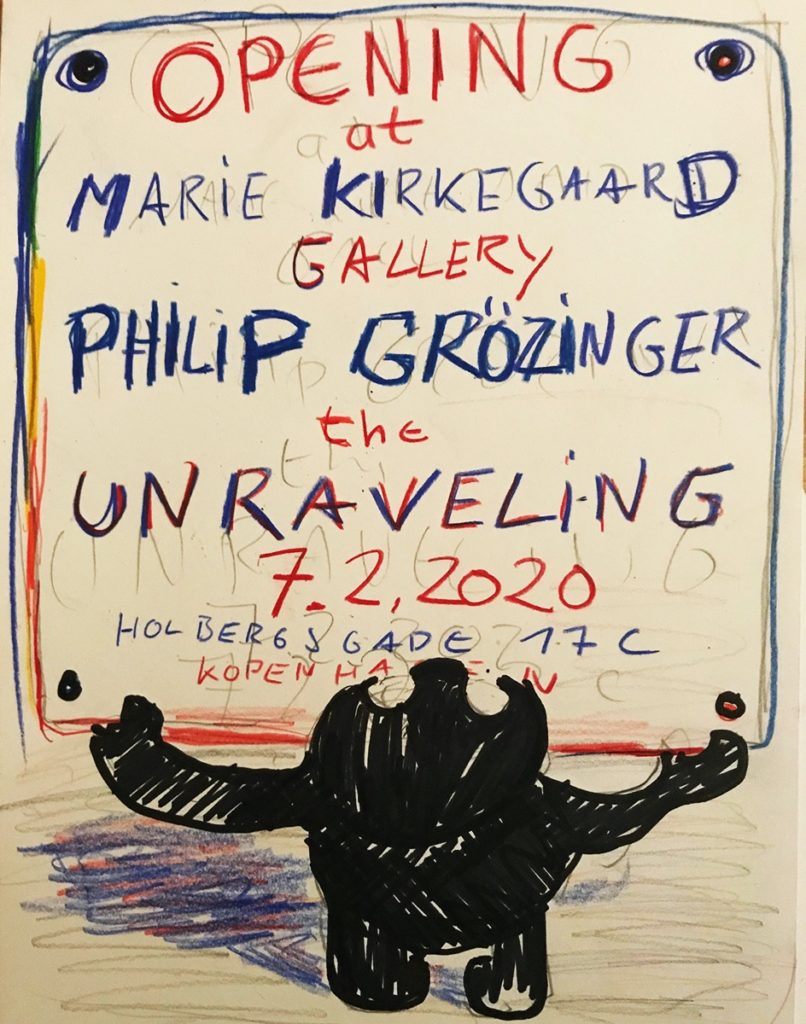 OPENING
at
MARiE KIRKEGAARD
GALLERY
PHiLiP GRÖZiNGER
the
UNRAVELiNG
7.2.2020
HOLBERGSGADE 17 C
KOPENHAGEN